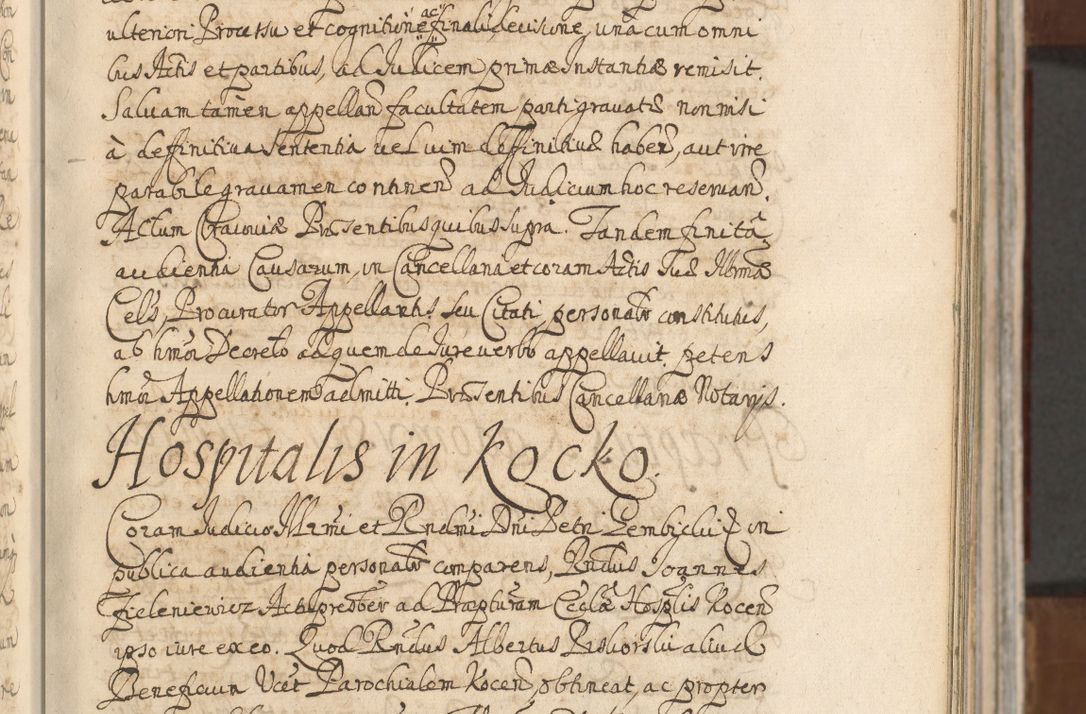 ulteriori Processu et cognitione ac finali decisione, una cum omni
bus Actis et partibus, ad Iudicem primæ Instantiæ remisit.
Salvam tamen appellan facultatem parti gravatæ non nisi
à deffinitiva Sententia vel vim deffinitivæ haben, aut irre
parabile gravamen continen ad Iudicium hoc reservan.
Actum Cracoviæ Præsentibus quibus supra. Tandem finitâ
audientia Causarum, in Cancellaria et coram Actis Suæ Illrmæ
Cels, Procurator Appellantis seu Citati personalr constitutus,
ab hmoi Decreto ad quem de Iure verbo appellavit. petens
hmoi Appellationem admitti. Præsentibus Cancellariæ Notarijs.
Hospitalis in Kocko.
Coram Iudicio Illrmi et Rndmi Dni Petri Gembiclui in
publica audientia personalr comparens, Rndus Ioannes
Zieleniewicz Actu presber ad Præpturam Ecclæ Hosplis Kocen
ipso iure ex eo. Quod Rndus Albertus Piskorski aliud
Beneficiun Vcet Parochialem Kocen, obtineat, ac propter